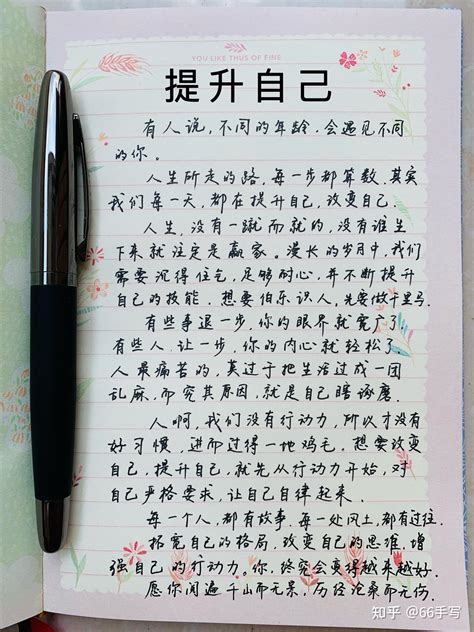 YOU LIKE THUS OF FINE
提升自己
有人说,不同的年龄,会遇见不同
的你。
人生所走的路,每一步都算数.其实
我们每一天,都在提升自己,改变自己.
人生,没有一蹴而就的,没有谁生
下来就注定是赢家。漫长的岁月中,我们
需要沉得住气,足够耐心,并不断提升
自己的技能.想要伯乐识人,先要做千里马.
有些事退一步,你的眼界就宽广了,
有些人,让一步,你的内心就轻松了.
人最痛苦的,莫过于把生活过成一团
乱麻,而究其原因,就是自己瞎琢磨.
人啊,我们没有行动力,所以才没有
好习惯,进而过得一地鸡毛.想要改变
自己,提升自己,就先从行动力开始,对
自己严格要求,让自己自律起来.
每一个人,都有故事.每一处风土,都有过往.
拓宽自己的格局,改变自己的思维,增
强自己的行动力。你,终究会变得越来越好.
愿你阅遍千山而无累,历经沧桑而无伤.
知乎 @66手写